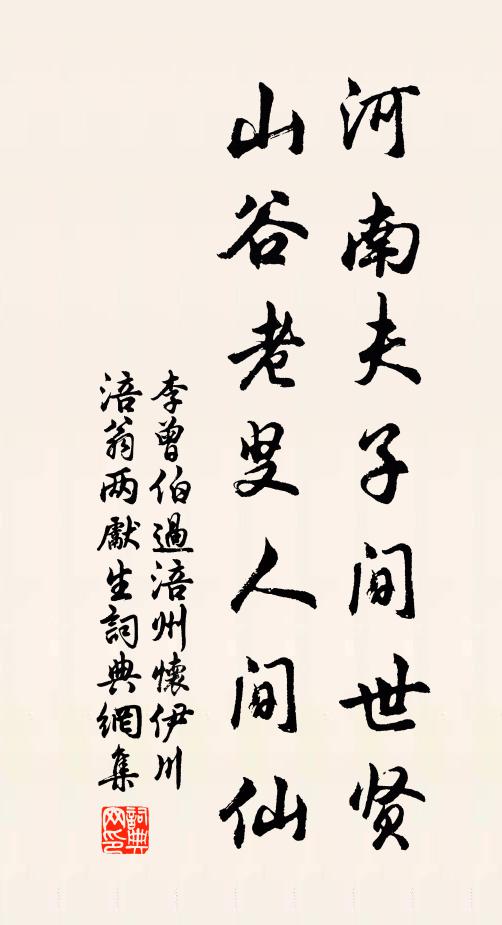 河南夫子间世贤
山谷老叟人间仙
李曾伯過涪州懷伊川
涪翁两獻生詞典網集
詞典网印